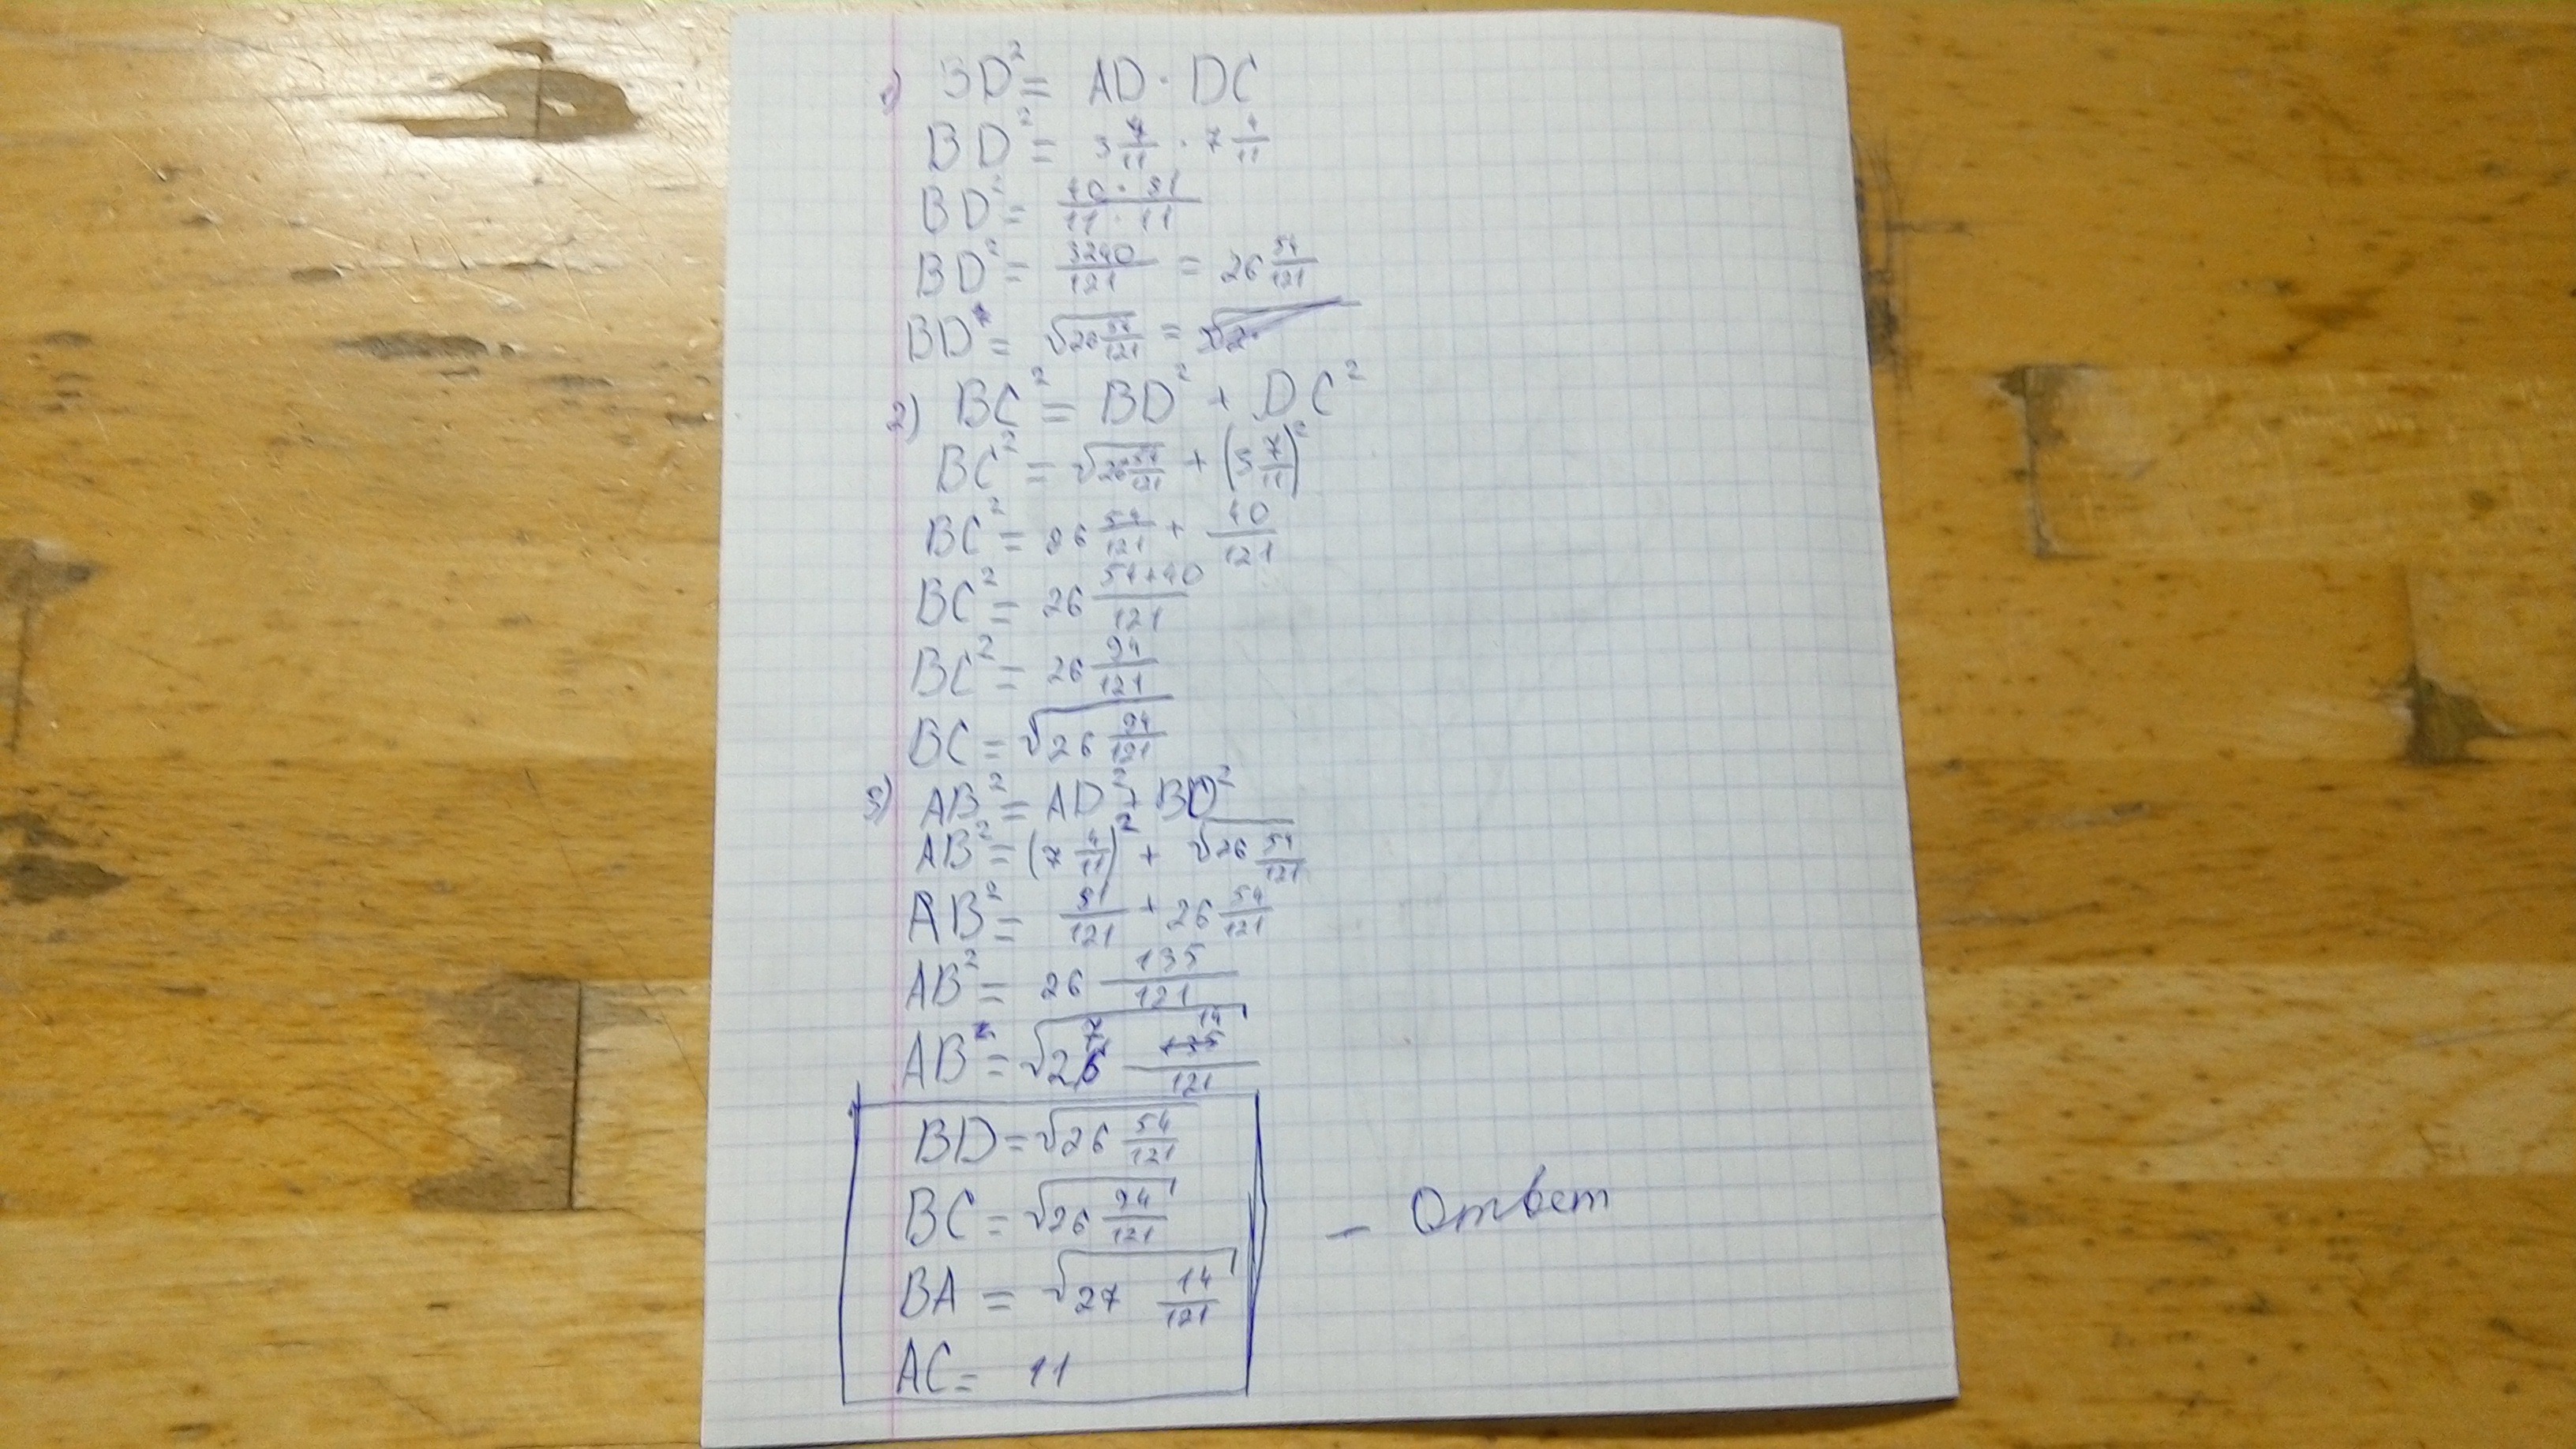 1) BD² = AD · DC
BD² = 3 7/11 · 7 4/11
BD² = 40 · 81 / 11 · 11
BD² = 3240/121 = 26 54/121
BD = √26 54/121 =
2) BC² = BD² + DC²
BC² = √26 54/121 + (3 7/11)²
BC² = 26 54/121 + 40/121
BC² = 26 54+40/121
BC² = 26 94/121
BC = √26 94/121
3) AB² = AD² + BD²
AB² = (7 4/11)² + √26 54/121
AB² = 81/121 + 26 54/121
AB² = 26 135/121
AB = √27 14/121
BD = √26 54/121
BC = √26 94/121
BA = √27 14/121
AC = 11
– Ответ